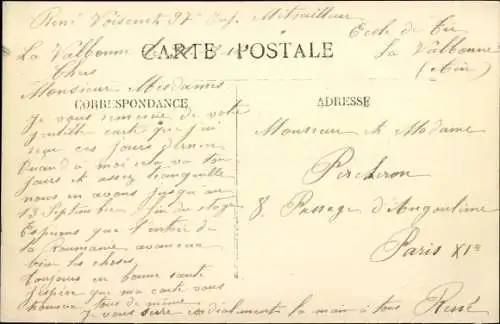 René Voisenet 97e Inf. Mitrailleur
Ecole de Tir
La Valbonne
La Valbonne
(Ain)
CARTE POSTALE
Chers
Monsieur Mesdames
CORRESPONDANCE
ADRESSE
Je vous remercie de votre
jolie carte que j'ai
reçue ces jours derniers
Quand à moi cela va tou
jours et assez tranquille
nous en avons jusqu'au
13 Septembre fin du stage
Espérons que l'entrée de
la Roumanie avancera
bien les choses
toujours en bonne santé
j'espère que ma carte vous
trouvera tous de même
Je vous serre cordialement la main à tous René
Monsieur et Madame
Percheron
8, Passage d'Angoulême
Paris XIe